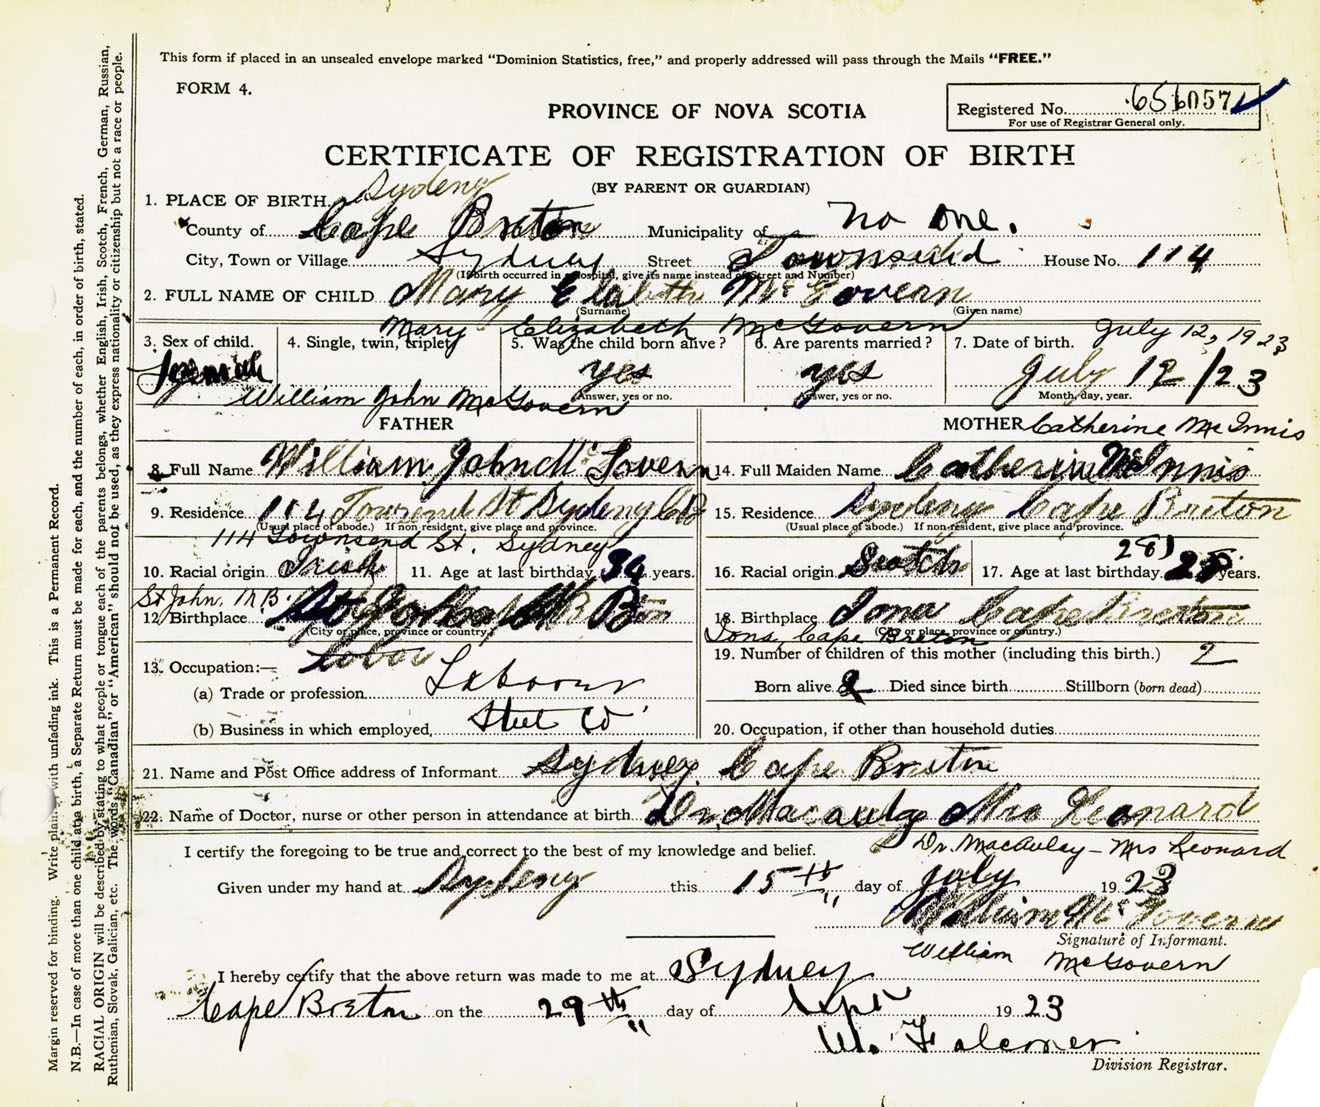 This form if placed in an unsealed envelope marked "Dominion Statistics, free," and properly addressed will pass through the Mails "FREE."
FORM 4.
PROVINCE OF NOVA SCOTIA
Registered No. 656057
For use of Registrar General only.
CERTIFICATE OF REGISTRATION OF BIRTH
(BY PARENT OR GUARDIAN)
1. PLACE OF BIRTH. Sydeny
County of Cape Breton Municipality of no one.
City, Town or Village Sydney Street Townsend House No. 114
(If birth occurred in a hospital, give its name instead of Street and Number)
2. FULL NAME OF CHILD Mary Elabeth McGovern
(Surname) (Given name)
Mary Elizabeth McGovern
3. Sex of child. 4. Single, twin, triplet 5. Was the child born alive? 6. Are parents married? 7. Date of birth. July 12, 1923
yes yes July 12/23
Answer, yes or no. Answer, yes or no. Month, day, year.
William John McGovern
FATHER MOTHER Catherine McInnis
8. Full Name William John McGovern 14. Full Maiden Name Catherine McInnis
9. Residence 114 Townsend St Sydeny CB 15. Residence Sydeny Cape Breton
(Usual place of abode.) If non-resident, give place and province. (Usual place of abode.) If non-resident, give place and province.
114 Townsend St. Sydney
10. Racial origin Irish 11. Age at last birthday 34 years. 16. Racial origin Scotch 17. Age at last birthday 28 years.
28)
St John. N.B.
12. Birthplace St John 18. Birthplace Iona Cape Breton
(City or place, province or country.) (City or place, province or country.)
Iona, Cape Breton
13. Occupation:— Labor 19. Number of children of this mother (including this birth.) 2
(a) Trade or profession Labour Born alive 2 Died since birth Stillborn (born dead)
(b) Business in which employed, Steel Co. 20. Occupation, if other than household duties
21. Name and Post Office address of Informant Sydney Cape Breton
22. Name of Doctor, nurse or other person in attendance at birth Dr. Macauly Mrs Leonard
I certify the foregoing to be true and correct to the best of my knowledge and belief. Dr. MacAulay - Mrs Leonard
Given under my hand at Sydeny this 15th day of July 1923
William McGovern
Signature of Informant.
William McGovern
I hereby certify that the above return was made to me at Sydney
Cape Breton on the 29th day of Sept 1923
W. Falconer
Division Registrar.
Margin reserved for binding. Write plainly with unfading ink. This is a Permanent Record.
N.B.—In case of more than one child at a birth, a Separate Return must be made for each, and the number of each, in order of birth, stated.
RACIAL ORIGIN will be described by stating to what people or tongue each of the parents belongs, whether English, Irish, Scotch, French, German, Russian,
Ruthenian, Slovak, Galician, etc. The words "Canadian" or "American" should not be used, as they express nationality or citizenship but not a race or people.